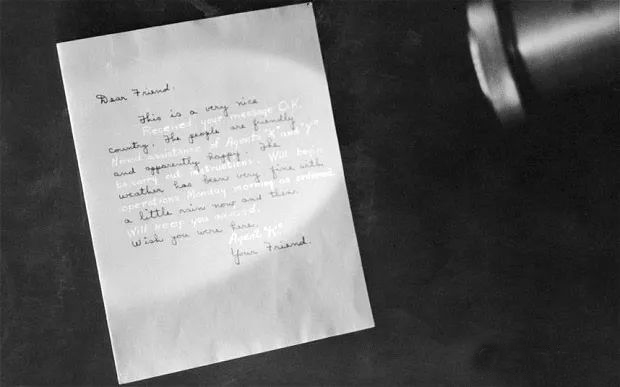 Dear Friend.
This is a very nice
Received your message O.K.
country. The people are friendly
Need assistance of Agents and
and apparently happy. The
to carry out instructions. Will begin
weather has been very fine with
operations Monday morning as ordered.
a little rain now and then.
Will keep you advised.
Wish you were here.
Agent
Your Friend.